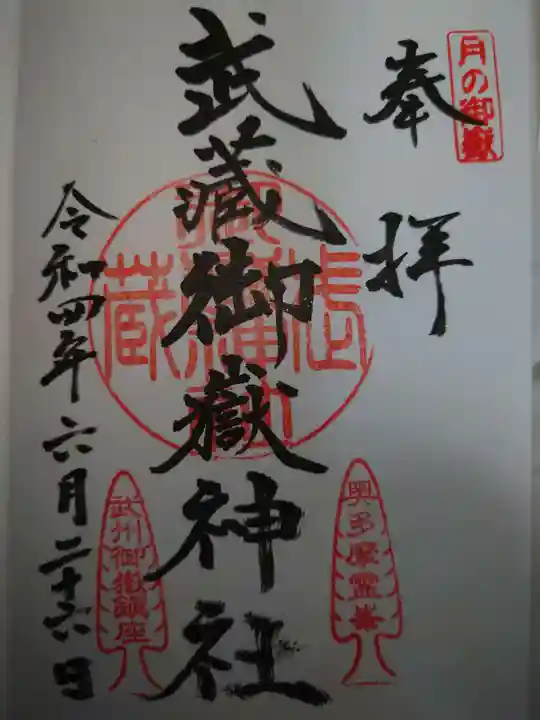 月の御嶽
奉拝
武蔵御嶽神社
奥多摩霊峯
武州御嶽鎮座
令和四年六月二十六日